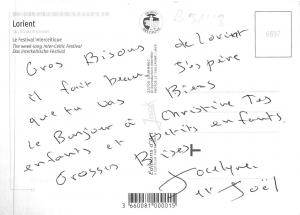 Lorient
Le Festival Interceltique
The week-long Inter-Celtic Festival
Das Interkeltische Festival
Gros Bisous
il fait beau
que tu vas
Le Bonjour à
enfants et
Grosses Bises
de Lorient
J'espère
Bien
Christine Tes
petits enfants
Jocelyne
et Joël
6697
3 660081 000015